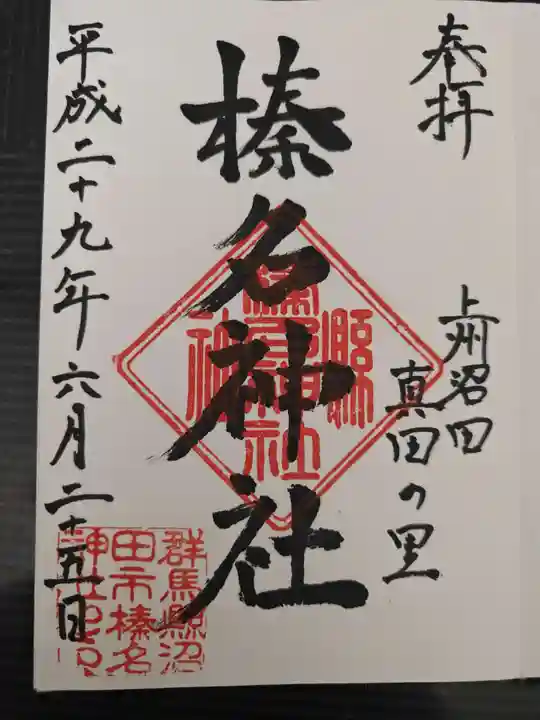 奉拝
上州沼田
真田の里
榛名神社
平成二十九年六月二十五日
縣
社
神
群馬縣沼
田市榛名
神社